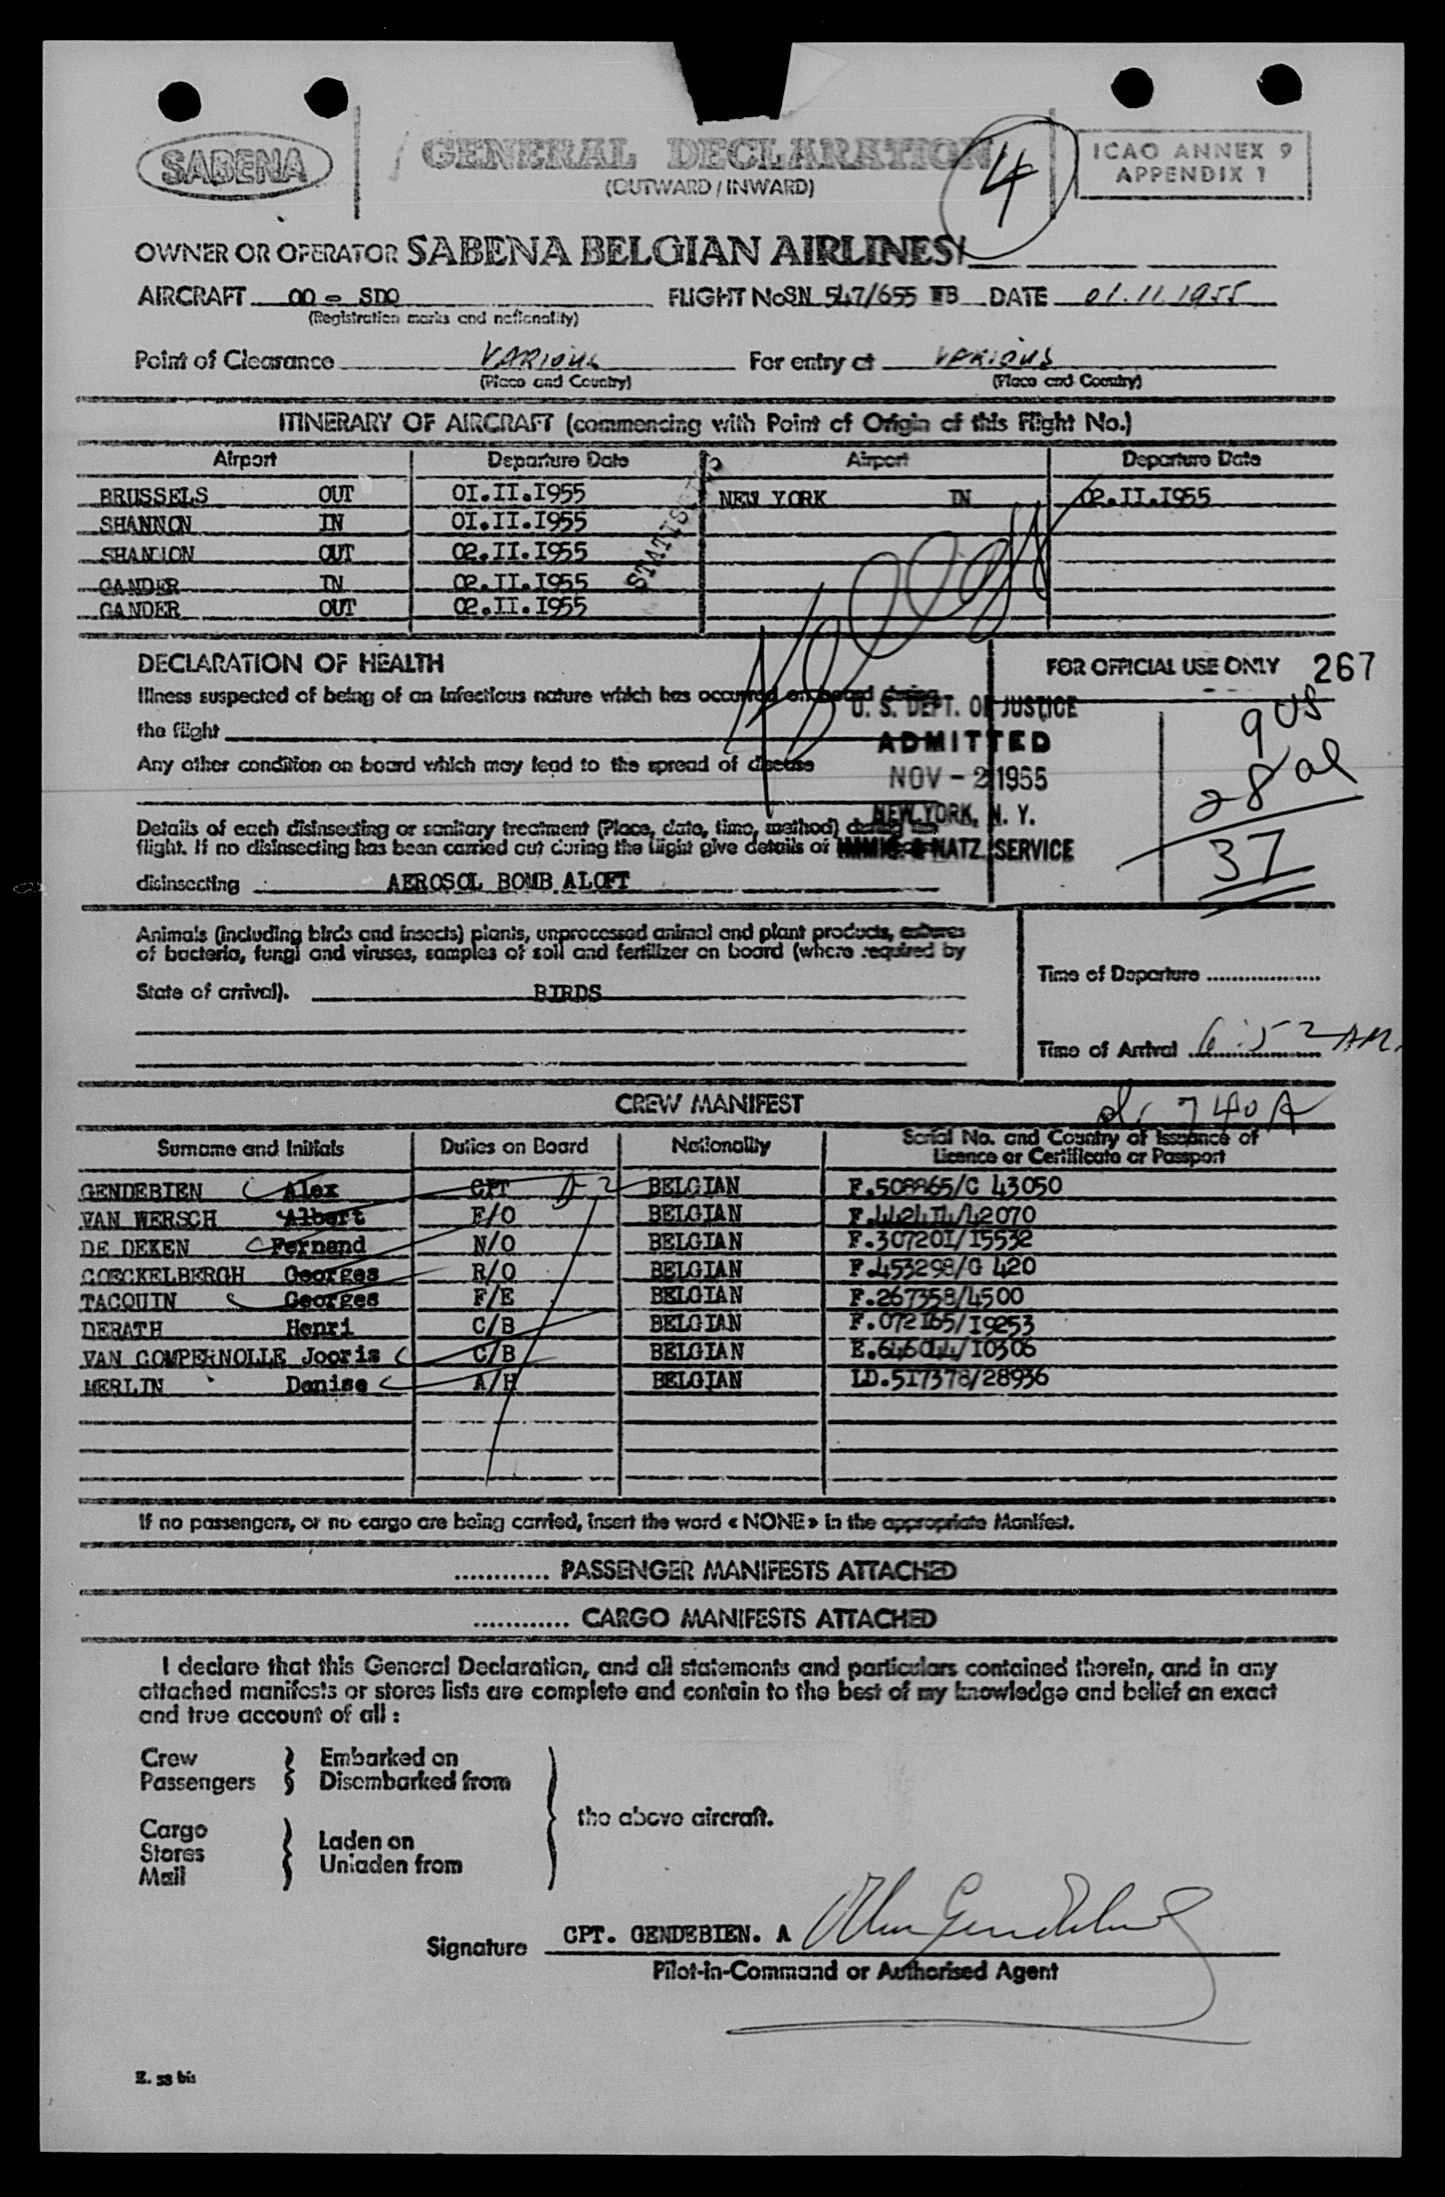 SABENA
GENERAL DECLARATION
(OUTWARD / INWARD)
4
ICAO ANNEX 9
APPENDIX 1
OWNER OR OPERATOR SABENA BELGIAN AIRLINES
AIRCRAFT OO - SDQ FLIGHT No SN 547/655 DATE 01.11.1955
(Registration marks and nationality)
Point of Clearance VARIOUS For entry at VARIOUS
(Place and Country) (Place and Country)
ITINERARY OF AIRCRAFT (commencing with Point of Origin of this Flight No.)
Airport Departure Date Airport Departure Date
BRUSSELS OUT OI.II.I955 NEW YORK IN 02.II.I955
SHANNON IN OI.II.I955
SHANNON OUT 02.II.I955
GANDER IN 02.II.I955
GANDER OUT 02.II.I955
DECLARATION OF HEALTH FOR OFFICIAL USE ONLY 267
Illness suspected of being of an infectious nature which has occurred on board during
the flight
Any other condition on board which may lead to the spread of disease
U. S. DEPT. OF JUSTICE
ADMITTED
NOV - 2 1955
NEW YORK, N. Y.
IMMIG. & NATZ. SERVICE
9 US
28 al
37
Details of each disinsecting or sanitary treatment (Place, date, time, method) during the
flight. If no disinsecting has been carried out during the flight give details of
disinsecting AEROSOL BOMB ALOFT
Animals (including birds and insects) plants, unprocessed animal and plant products, cultures
of bacteria, fungi and viruses, samples of soil and fertilizer on board (where required by
State of arrival). BIRDS
Time of Departure
Time of Arrival 6:52 AM.
740A
CREW MANIFEST
Surname and Initials Duties on Board Nationality Serial No. and Country of Issuance of
Licence or Certificate or Passport
GENDEBIEN Alex CPT BELGIAN F.508865/C 43050
VAN WERSCH Albert F/O BELGIAN F.442414/42070
DE DEKEN Fernand N/O BELGIAN F.30720I/I5532
COECKELBERGH Georges R/O BELGIAN F.453298/G 420
TACQUIN Georges F/E BELGIAN F.267358/4500
DERATH Henri C/B BELGIAN F.072I65/I9253
VAN COMPERNOLLE Jooris C/B BELGIAN E.646044/I0306
MERLIN Denise A/H BELGIAN LD.5I7378/28936
If no passengers, or no cargo are being carried, insert the word « NONE » in the appropriate Manifest.
............ PASSENGER MANIFESTS ATTACHED
............ CARGO MANIFESTS ATTACHED
I declare that this General Declaration, and all statements and particulars contained therein, and in any
attached manifests or stores lists are complete and contain to the best of my knowledge and belief an exact
and true account of all :
Crew Embarked on
Passengers Disembarked from
the above aircraft.
Cargo
Stores Laden on
Mail Unladen from
Signature CPT. GENDEBIEN. A
Pilot-in-Command or Authorised Agent
E. 58 bis